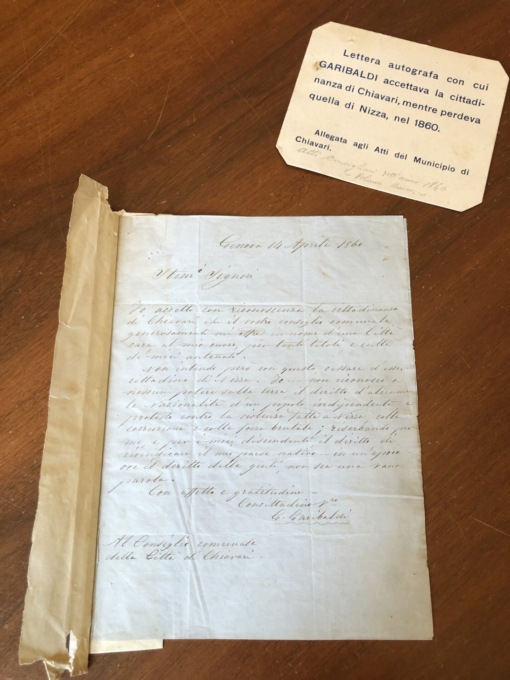 Lettera autografa con cui
GARIBALDI accettava la cittadi-
nanza di Chiavari, mentre perdeva
quella di Nizza, nel 1860.
Allegata agli Atti del Municipio di
Chiavari.
Genova 14 Aprile 1860
Signori
Io accetto con riconoscenza la cittadinanza
di Chiavari che il vostro consiglio comunale
generosamente mi in nome d'una Città
cara al mio cuore, per tanti titoli e culla
de' miei antenati.
Non intendo però con questo cessare d'essere
cittadino di Nizza. Io non riconosco a
nessun potere sulla terra il diritto d'alienare
la nazionalità d'un popolo indipendente, e
protesto contro la violenza fatta a Nizza colla
corruzione e colla forza brutale; riserbando per
me e per i miei discendenti il diritto di
rivendicare il mio paese nativo in un'epoca
ove il diritto delle genti non sia una vana
parola.
Con affetto e gratitudine
Concittadino
G. Garibaldi
Al Consiglio comunale
della Città di Chiavari.